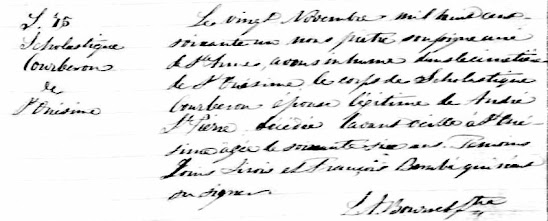 S. 15
Scholastique
Courberon
de
St Onésime
Le vingt Novembre mil huit cent
soixante un nous prêtre soussigné curé
de St avons inhumé dans le cimetière
de St Onésime le corps de Scholastique
Courberon épouse légitime de André
St Pierre décédée l'avant veille à St Oné-
sime âgée de soixante six ans. Témoins
Sirois et François Bérubé qui n'ont
su signer.